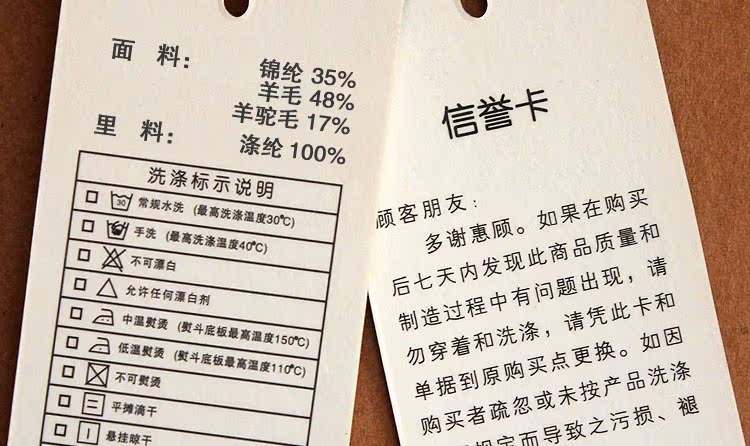 面 料：
锦纶 35%
羊毛 48%
羊驼毛 17%
里 料：
涤纶 100%
洗涤标示说明
30 常规水洗（最高洗涤温度30℃）
手洗（最高洗涤温度40℃）
不可漂白
允许任何漂白剂
中温熨烫（熨斗底板最高温度150℃）
低温熨烫（熨斗底板最高温度110℃）
不可熨烫
平摊滴干
悬挂晾干
信誉卡
顾客朋友：
多谢惠顾。如果在购买
后七天内发现此商品质量和
制造过程中有问题出现，请
勿穿着和洗涤，请凭此卡和
单据到原购买点更换。如因
购买者疏忽或未按产品洗涤
规定而导致之污损、褪